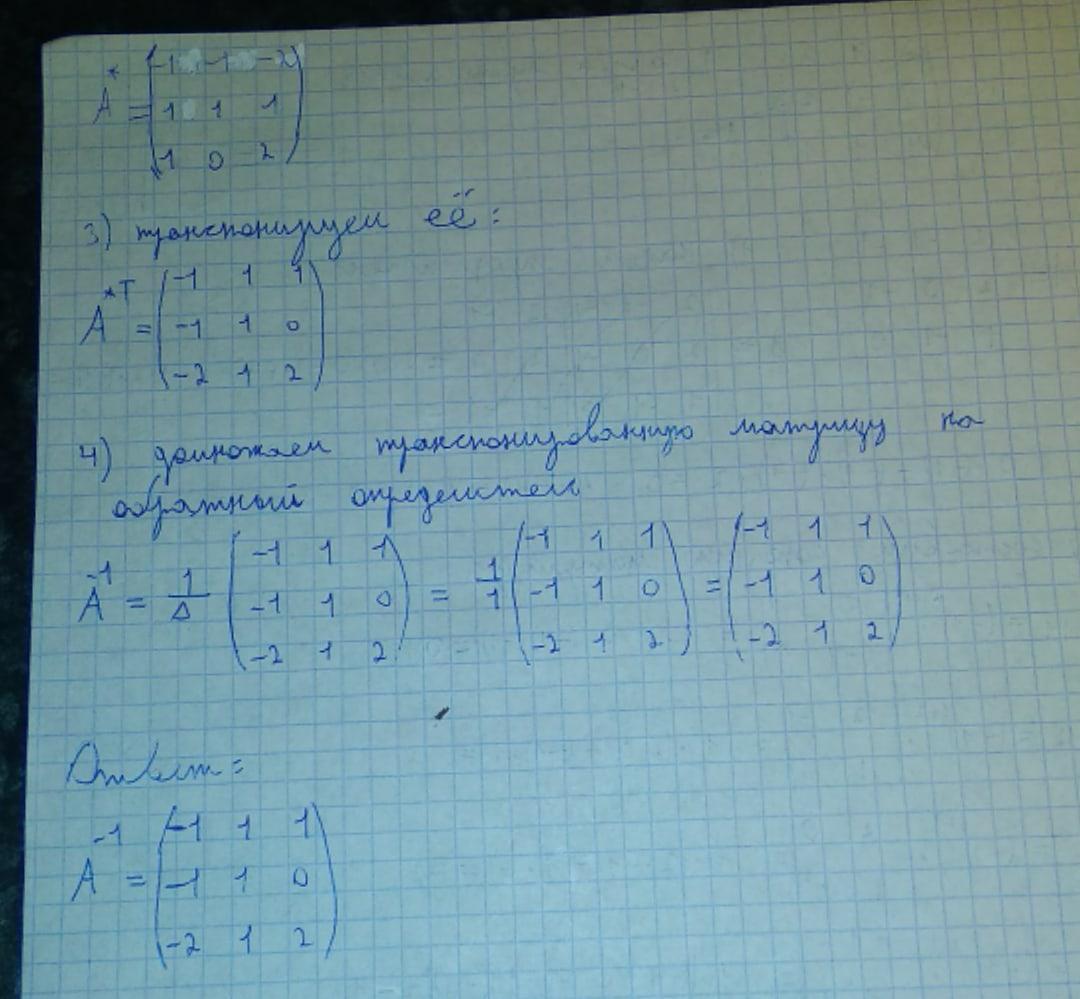 A* = (-1 -1 -2
1 1 1
1 0 2)
3) транспонируем её:
A*T = (-1 1 1
-1 1 0
-2 1 2)
4) домножаем транспонированную матрицу на
обратный определитель
A-1 = 1/Δ (-1 1 1 = 1/1 (-1 1 1 = (-1 1 1
-1 1 0 -1 1 0 -1 1 0
-2 1 2) -2 1 2) -2 1 2)
Ответ:
A-1 = (-1 1 1
-1 1 0
-2 1 2)